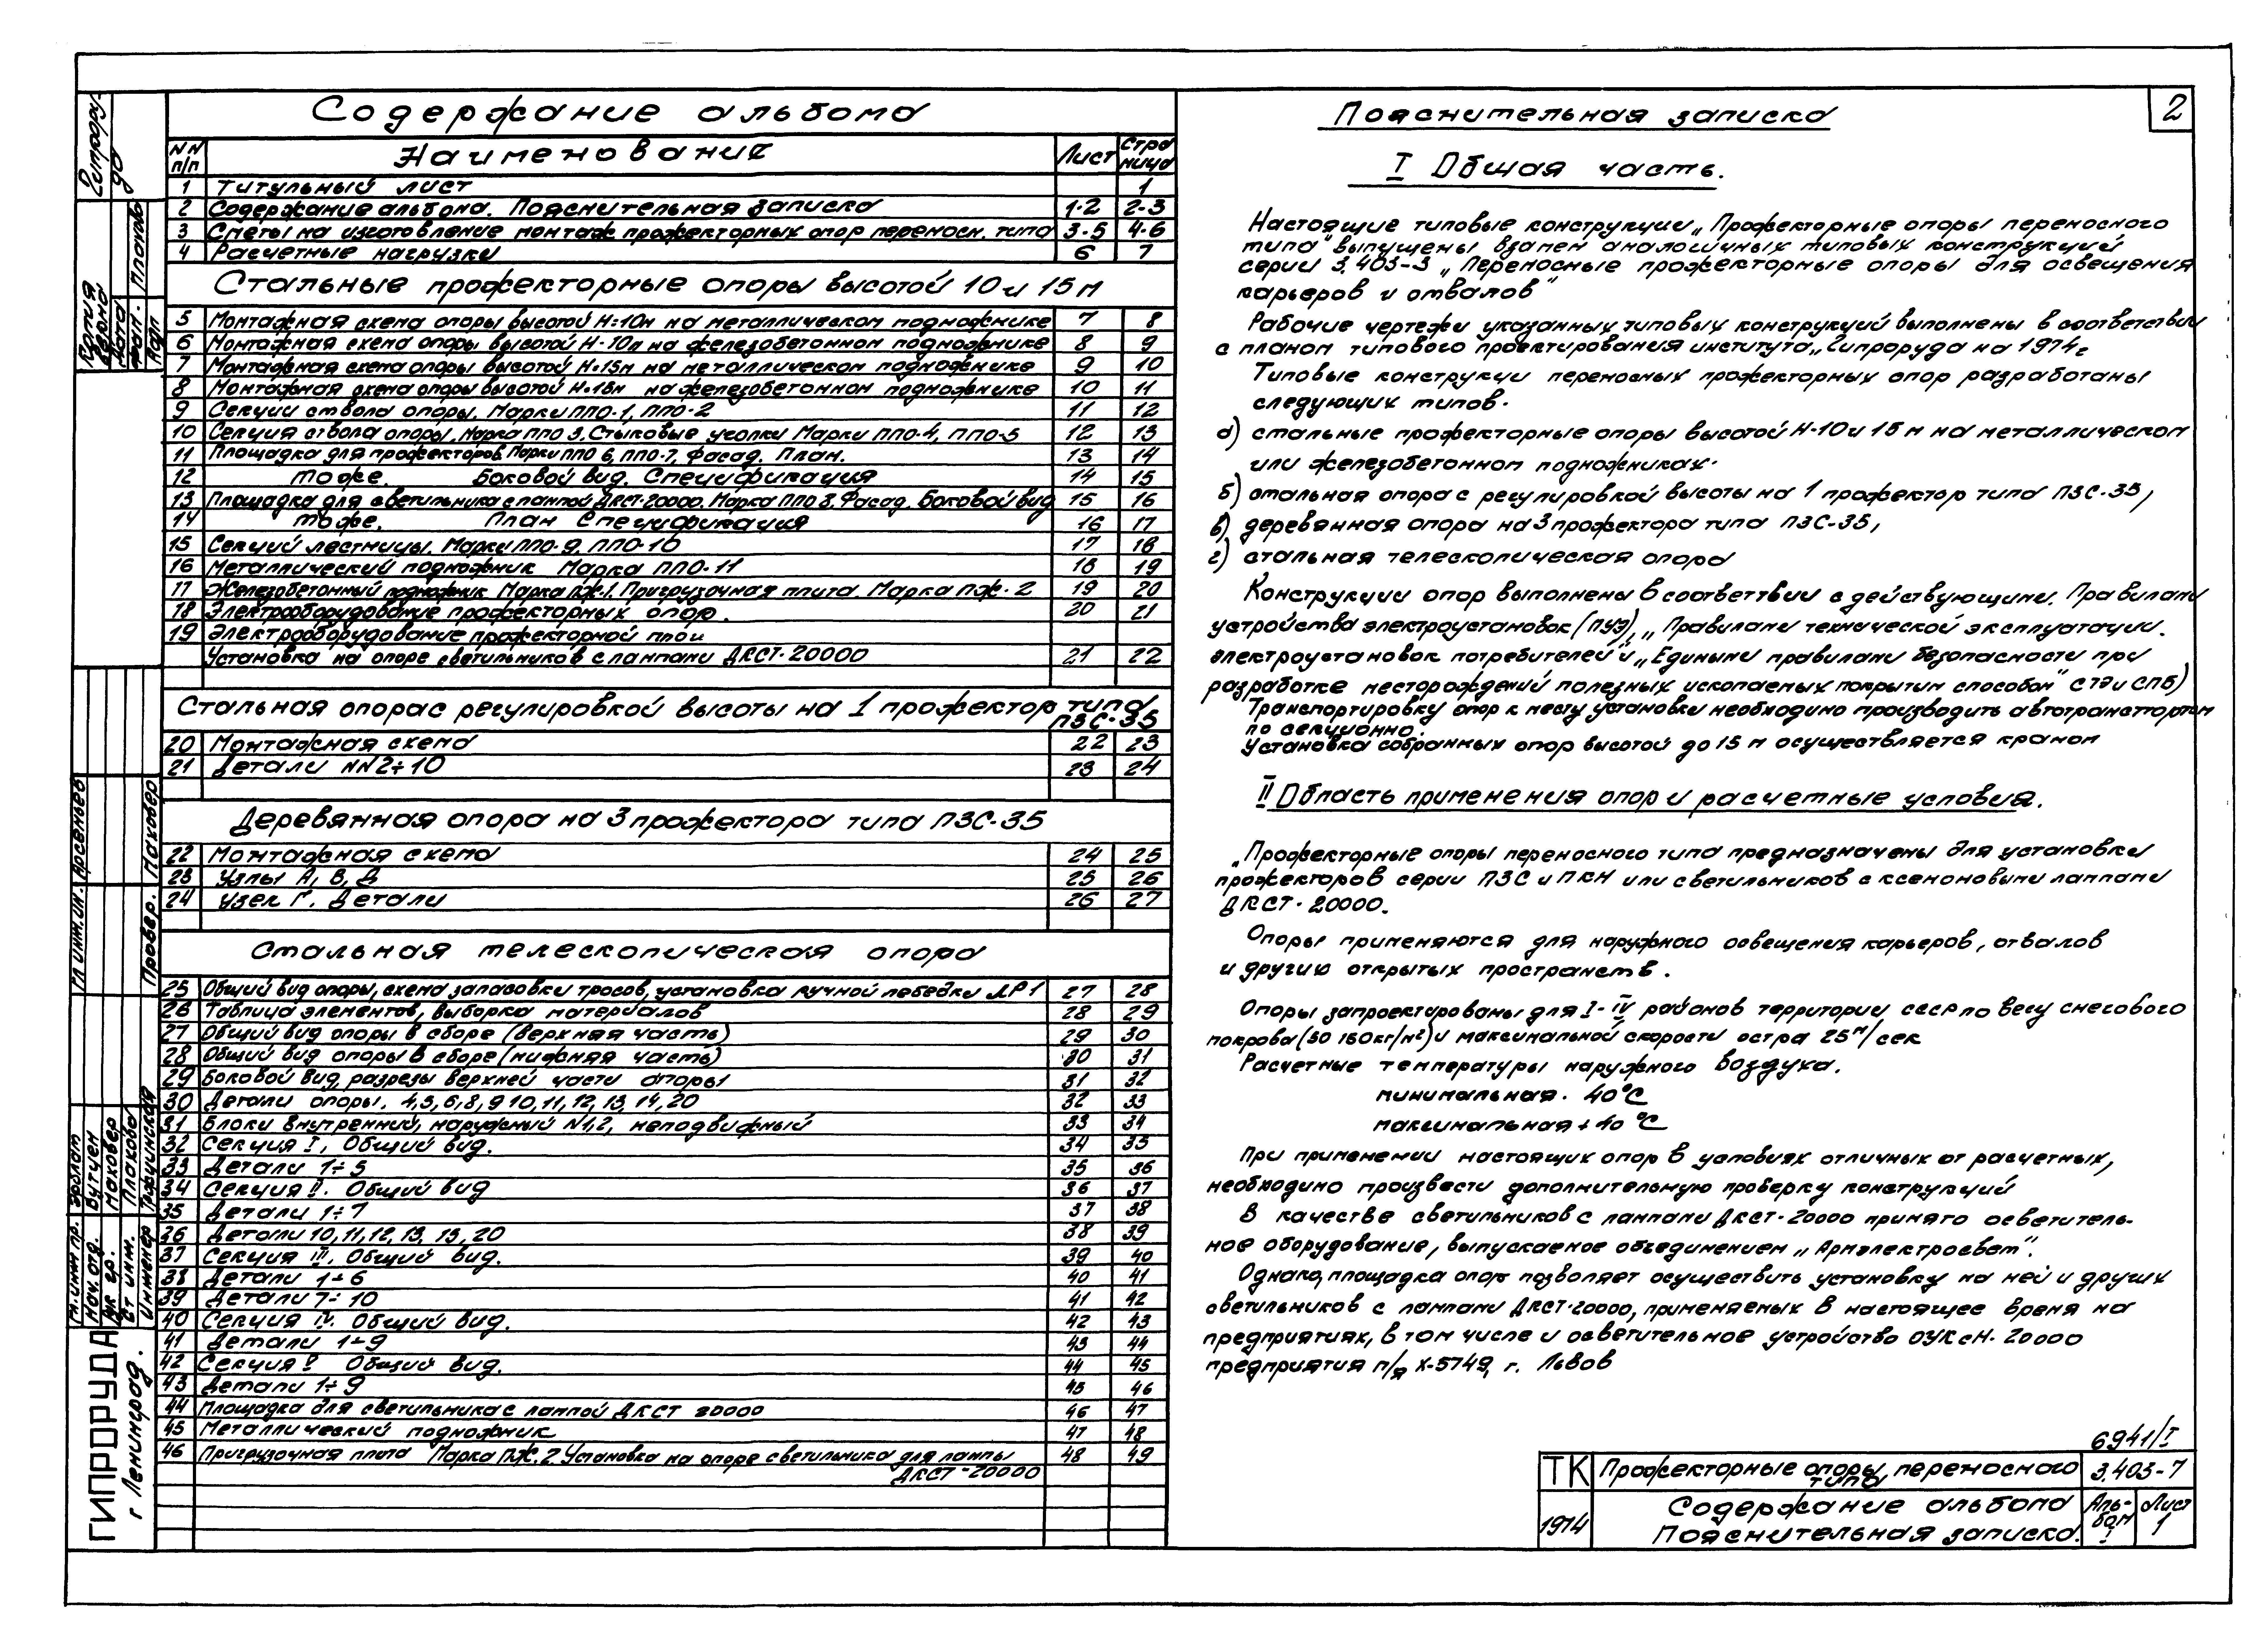 Содержание альбома
NN п/п Наименование Лист Страница
1 Титульный лист 1
2 Содержание альбома. Пояснительная записка 1-2 2-3
3 Сметы на изготовление монтаж прожекторных опор переносн. типа 3-5 4-6
4 Расчетные нагрузки 6 7
Стальные прожекторные опоры высотой 10 и 15 м
5 Монтажная схема опоры высотой H=10м на металлическом подножнике 7 8
6 Монтажная схема опоры высотой H-10м на железобетонном подножнике 8 9
7 Монтажная схема опоры высотой H=15м на металлическом подножнике 9 10
8 Монтажная схема опоры высотой H=15м на железобетонном подножнике 10 11
9 Секции ствола опоры. Марки ППО-1, ППО-2 11 12
10 Секция ствола опоры. Марка ППО 3. Стыковые уголки Марки ППО-4, ППО-5 12 13
11 Площадка для прожекторов. Марки ППО 6, ППО-7. Фасад. План. 13 14
12 То же. Боковой вид. Спецификация 14 15
13 Площадка для светильника с лампой ДКСТ-20000. Марка ППО 8. Фасад. Боковой вид 15 16
14 То же. План Спецификация 16 17
15 Секций лестницы. Марки ППО-9, ППО-10 17 18
16 Металлический подножник Марка ППО-11 18 19
17 Железобетонный подножник Марка ПЖ-1. Пригрузочная плита. Марка ПЖ-2 19 20
18 Электрооборудование прожекторных опор. 20 21
19 Электрооборудование прожекторной
Установка на опоре светильников с лампами ДКСТ-20000 21 22
Стальная опора с регулировкой высоты на 1 прожектор типа
ПЗС-35
20 Монтажная схема 22 23
21 Детали NN2÷10 23 24
Деревянная опора на 3 прожектора типа ПЗС-35
22 Монтажная схема 24 25
23 Узлы А, В, Д 25 26
24 Узел Г. Детали 26 27
Стальная телескопическая опора
25 Общий вид опоры, схема запасовки тросов, установка ручной лебедки ЛР1 27 28
26 Таблица элементов, выборка материалов 28 29
27 Общий вид опоры в сборе (верхняя часть) 29 30
28 Общий вид опоры в сборе (нижняя часть) 30 31
29 Боковой вид, разрезы верхней части опоры 31 32
30 Детали опоры. 4,5,6,8,9 10,11,12,13,14,20 32 33
31 Блоки внутренний, наружный N1,2, неподвижный 33 34
32 Секция I, Общий вид. 34 35
33 Детали 1÷5 35 36
34 Секция II. Общий вид 36 37
35 Детали 1÷7 37 38
36 Детали 10,11,12,13,15,20 38 39
37 Секция III. Общий вид. 39 40
38 Детали 1÷6 40 41
39 Детали 7÷10 41 42
40 Секция IV. Общий вид. 42 43
41 Детали 1÷9 43 44
42 Секция V Общий вид. 44 45
43 Детали 1÷9 45 46
44 Площадка для светильника с лампой ДКСТ 20000 46 47
45 Металлический подножник 47 48
46 Пригрузочная плита Марка ПЖ.2 Установка на опоре светильника для лампы 48 49
ДКСТ-20000
Пояснительная записка
2
I Общая часть.
Настоящие типовые конструкции „Прожекторные опоры переносного
типа" выпущены взамен аналогичных типовых конструкций
серии 3.403-3 „Переносные прожекторные опоры для освещения
карьеров и отвалов"
Рабочие чертежи указанных типовых конструкций выполнены в соответствии
с планом типового проектирования института „Гипроруда на 1974г
Типовые конструкции переносных прожекторных опор разработаны
следующих типов.
а) стальные прожекторные опоры высотой H-10 и 15 м на металлическом
или железобетонном подножниках.
б) стальная опора с регулировкой высоты на 1 прожектор типа ПЗС-35,
в) деревянная опора на 3 прожектора типа ПЗС-35,
г) стальная телескопическая опора
Конструкции опор выполнены в соответствии с действующими. Правилами
устройства электроустановок (ПУЭ), „Правилами технической эксплуатации.
электроустановок потребителей" и „Едиными правилами безопасности при
разработке месторождений полезных ископаемых покрытым способом" СТЭ и СПБ)
Транспортировку опор к месту установки необходимо производить автотранспортом
по секционно.
Установка собранных опор высотой до 15 м осуществляется краном
II Область применения опор и расчетные условия.
„Прожекторные опоры переносного типа предназначены для установки
прожекторов серии ПЗС и ПКН или светильников с ксеноновыми лампами
ДКСТ-20000.
Опоры применяются для наружного освещения карьеров, отвалов
и другию открытых пространств.
Опоры запроектированы для I-IV районов территории СССР по весу снегового
покрова (50 150кг/м²) и максимальной скорости остра 25м/сек
Расчетные температуры наружного воздуха.
минимальная - 40°С
максимальная + 40°С
При применении настоящих опор в условиях отличных от расчетных,
необходимо произвести дополнительную проверку конструкций
В качестве светильников с лампами ДКСТ-20000 принято осветитель-
ное оборудование, выпускаемое объединением „Армэлектросвет".
Однако, площадка опор позволяет осуществить установку на ней и других
светильников с лампами ДКСТ-20000, применяемых в настоящее время на
предприятиях, в том числе и осветительное устройство ОУКсН-20000
предприятия п/я Х-5749, г. Львов
6941/I
ТК Прожекторные опоры, переносного типа 3.403-7
1974 Содержание альбома Пояснительная записка. Альбом I Лист 1
Гипроруда
Копия верна
Дата
Плахова
Гл. инж. ин. Арсеньев
Провер. Маковер
Гл. инж. пр.
Нач. отд. Вутчен
Рук гр. Маковер
Ст инж. Плахова
Инженер
ГИПРОРУДА
г Ленинград.